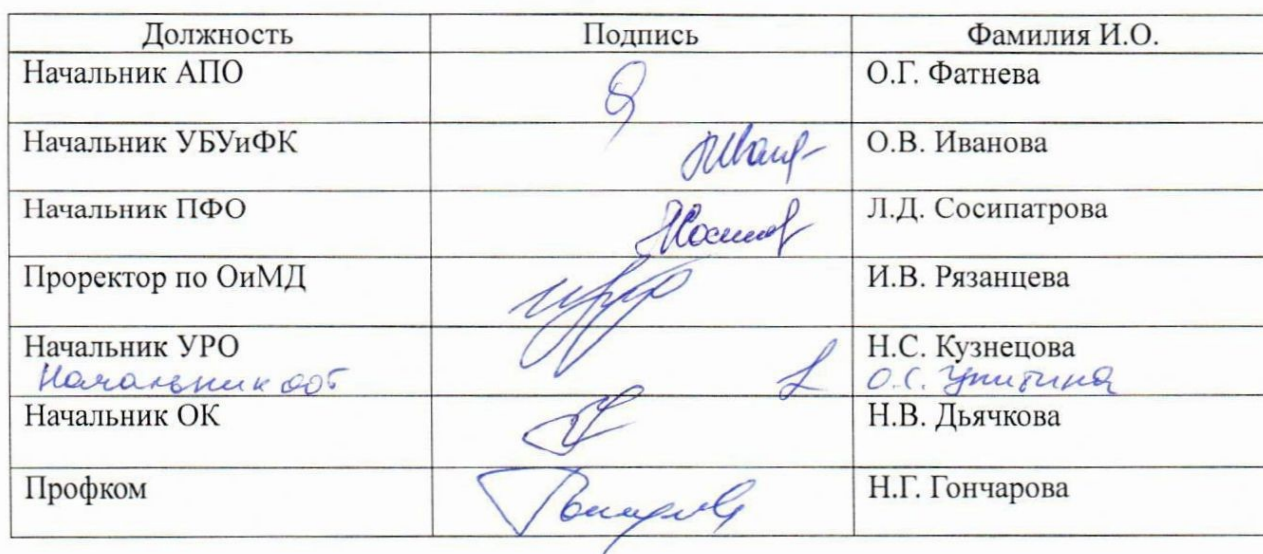 Должность Подпись Фамилия И.О.
Начальник АПО О.Г. Фатнева
Начальник УБУиФК О.В. Иванова
Начальник ПФО Л.Д. Сосипатрова
Проректор по ОиМД И.В. Рязанцева
Начальник УРО Н.С. Кузнецова
Начальник О.С.
Начальник ОК Н.В. Дьячкова
Профком Н.Г. Гончарова